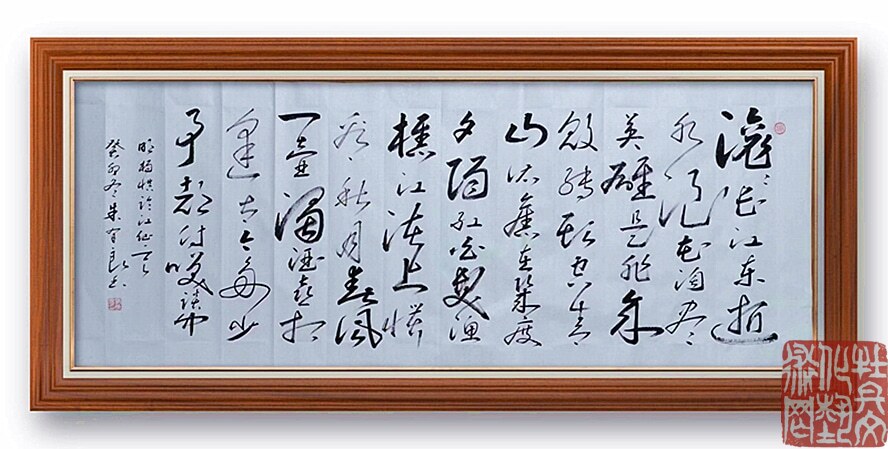 滚滚长江东逝
水浪花淘尽
英雄是非成
败转头空青
山依旧在几度
夕阳红白发渔
樵江渚上惯
看秋月春风
一壶浊酒喜相
逢古今多少
事都付笑谈中
明杨慎临江仙
癸卯冬朱育良书